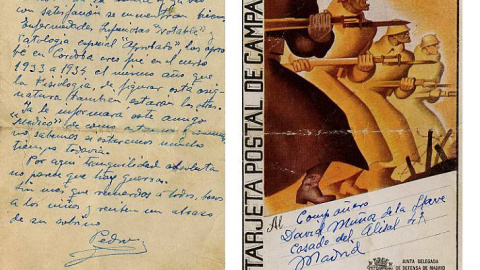 con satisfacción se encuentran bien
Enfermedades Infecciosas "Notable" y
Patología especial "Aprobado" las aprobé
en Cordoba creo que en el curso
1933 a 1934 el mismo año que
la Fisiología, de figurar está asig-
natura tambien estaran las otras.
Ya le informara este amigo
"médico" de como estamos
no sabemos si estaremos mucho
tiempo todavia.
Por aquí tranquilidad absoluta
no parece que hay guerra.
Sin más que recuerdos a todos, besos
a los niños y reciben un abrazo
de su sobrino
Pedro
TARJETA POSTAL DE CAMPA
Al Compañero
David Muña de la Llave
Casado del Alisal
Madrid
JUNTA DELEGADA
DE DEFENSA DE MADRID